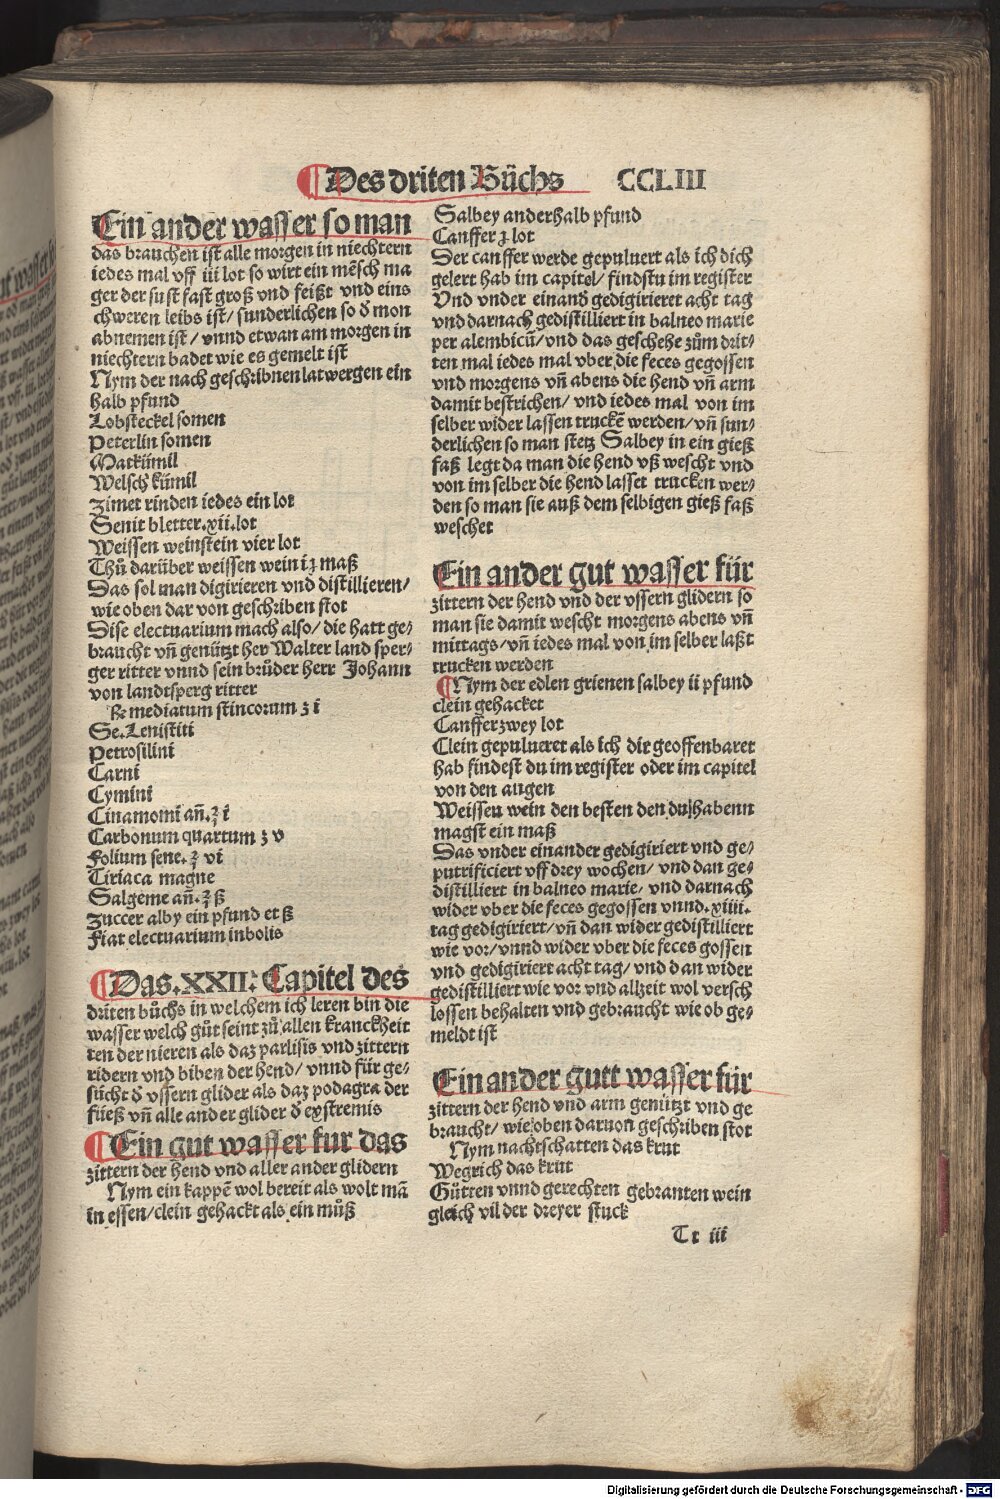 Des driten Bůchs CCLIII
Ein ander wasser so man
das brauchen ist alle morgen in niechtern
iedes mal vff iii lot so wirt ein mẽsch ma
ger der sust fast groß vnd feißt vnd eins
schweren leibs ist/ sunderlichen so d̕ mon
abnemen ist/ vnnd etwan am morgen in
niechtern badet wie es gemelt ist
Nym der nach geschribnen latwergen ein
halb pfund
Lobsteckel somen
Peterlin somen
Matkümil
Welsch kümil
Zimet rinden iedes ein lot
Senit bletter.xii.lot
Weissen weinstein vier lot
Thů darüber weissen wein iꝫ maß
Das sol man digirieren vnd distillieren/
wie oben dar von geschriben stot
Dise electuarium mach also/ die hatt ge⸗
braucht vñ genützt her Walter land sper⸗
ger ritter vnnd sein brüder herr Johann
von landtsperg ritter
℞ mediatum stincorum ʒ i
Se.Lenistiti
Petrosilini
Carni
Cymini
Cinamomi añ.ʒ i
Carbonum quartum ʒ v
Folium sene.ʒ vi
Tiriaca magne
Salgeme añ.ʒ ß
Zuccer alby ein pfund et ß
Fiat electuarium in bolis
Das.XXII: Capitel des
driten bůchs in welchem ich leren bin die
wasser welch gůt seint zů allen kranckheit
ten der nieren als daz parlisis vnd zittern
ridern vnd biben der hend/ vnnd für ge⸗
sücht d̕ vssern glider als daz podagra der
fueß vñ alle ander glider d̕ exstremis
Ein gut wasser fur das
zittern der hend vnd aller ander glidern
Nym ein kappẽ wol bereit als wolt mã
in essen/clein gehackt als ein můß
Salbey anderhalb pfund
Canffer ʒ lot
Der canffer werde gepuluert als ich dich
gelert hab im capitel/ findstu im register
Vnd vnder einand̕ gedigirieret acht tag
vnd darnach gedistilliert in balneo marie
per alembicũ/ vnd das geschehe zům drit⸗
ten mal iedes mal vber die feces gegossen
vnd morgens vñ abens die hend vñ arm
damit bestrichen/ vnd iedes mal von im
selber wider lassen truckẽ werden/ vñ sun⸗
derlichen so man stetz Salbey in ein gieß
faß legt da man die hend vß wescht vnd
von im selber die hend lasset trucken wer⸗
den so man sie auß dem selbigen gieß faß
weschet
Ein ander gut wasser für
zittern der hend vnd der vssern glidern so
man sie damit wescht morgens abens vñ
mittags/ vñ iedes mal von im selber laßt
trucken werden
Nym der edlen grienen salbey ii pfund
clein gehacket
Canffer zwey lot
Clein gepulueret als ich dir geoffenbaret
hab findest du im register oder im capitel
von den augen
Weissen wein den besten den du habenn
magst ein maß
Das vnder einander gedigiriert vnd ge⸗
putrificiert vff drey wochen/ vnd dan ge⸗
distilliert in balneo marie/ vnd darnach
wider vber die feces gegossen vnnd.xiiii.
tag gedigiriert/ vñ dan wider gedistilliert
wie vor/ vnnd wider vber die feces gossen
vnd gedigiriert acht tag/ vnd dan wider
gedistilliert wie vor vnd allzeit wol versch
lossen behalten vnd gebraucht wie ob ge⸗
meldt ist
Ein ander gutt wasser für
zittern der hend vnd arm genützt vnd ge
braucht/ wie oben daruon geschriben stot
Nym nachtschatten das krut
Wegrich das krut
Gůtten vnnd gerechten gebranten wein
gleich vil der dreyer stuck
Tt iii
Digitalisierung gefördert durch die Deutsche Forschungsgemeinschaft - DFG